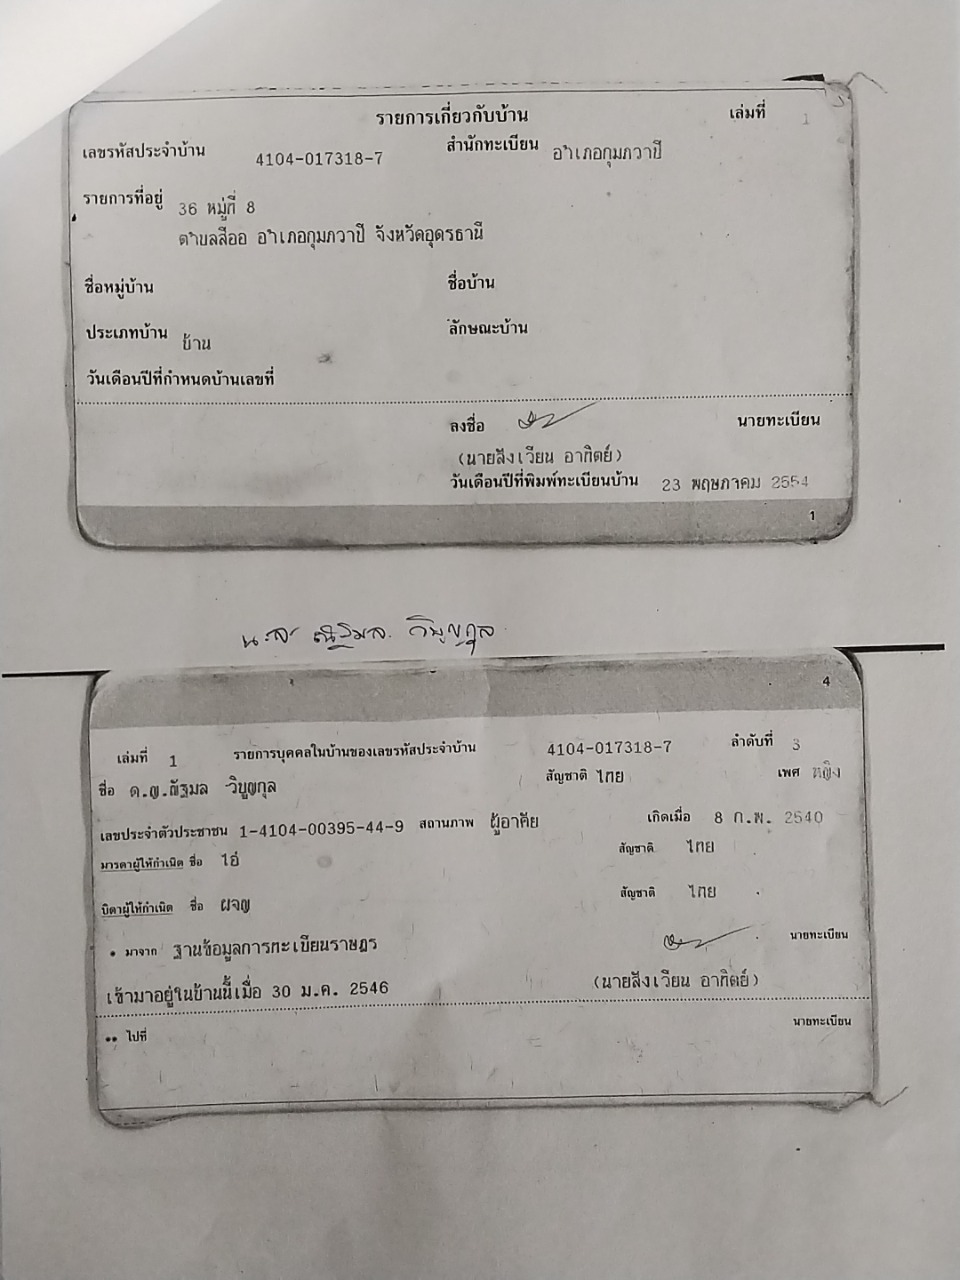 รายการเกี่ยวกับบ้าน เล่มที่ 1
เลขรหัสประจำบ้าน 4104-017318-7 สำนักทะเบียน อำเภอกุมภวาปี
รายการที่อยู่ 36 หมู่ที่ 8
ตำบลสีออ อำเภอกุมภวาปี จังหวัดอุดรธานี
ชื่อหมู่บ้าน ชื่อบ้าน
ประเภทบ้าน บ้าน ลักษณะบ้าน
วันเดือนปีที่กำหนดบ้านเลขที่
ลงชื่อ นายทะเบียน
(นายสังเวียน อาทิตย์)
วันเดือนปีที่พิมพ์ทะเบียนบ้าน 23 พฤษภาคม 2554
1
ณัฐมล วิบูญกุล
4
เล่มที่ 1 รายการบุคคลในบ้านของเลขรหัสประจำบ้าน 4104-017318-7 ลำดับที่ 3
ชื่อ ด.ญ.ณัฐมล วิบูญกุล สัญชาติ ไทย เพศ หญิง
เลขประจำตัวประชาชน 1-4104-00395-44-9 สถานภาพ ผู้อาศัย เกิดเมื่อ 8 ก.พ. 2540
มารดาผู้ให้กำเนิด ชื่อ ไอ๋ สัญชาติ ไทย
บิดาผู้ให้กำเนิด ชื่อ ผจญ สัญชาติ ไทย
* มาจาก ฐานข้อมูลการทะเบียนราษฎร นายทะเบียน
เข้ามาอยู่ในบ้านนี้เมื่อ 30 ม.ค. 2546 (นายสังเวียน อาทิตย์)
** ไปที่ นายทะเบียน